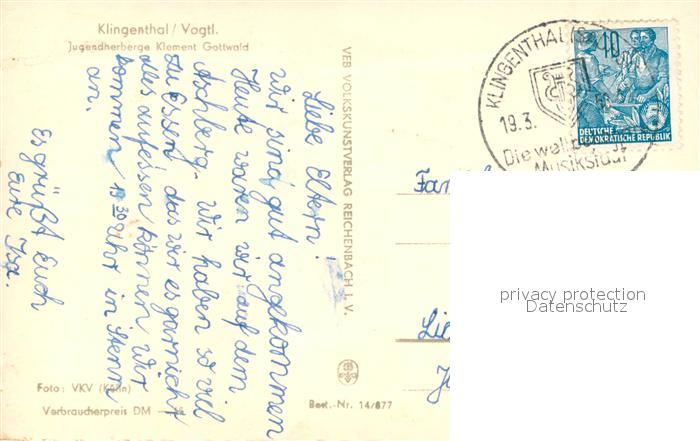 Klingenthal / Vogtl.
Jugendherberge Klement Gottwald
Liebe Eltern!
wir sind gut angekommen
Heute waren wir auf dem
Aschberg. Wir haben so viel
zu Essen das wir es garnicht
alles aufessen können. Wir
kommen 19 30 Uhr in
an.
Es grüßt Euch
Eure
Foto: VKV (Köhn)
Verbraucherpreis DM
VEB VOLKSKUNSTVERLAG REICHENBACH I. V.
Best.-Nr. 14/877
KLINGENTHAL (S
19.3.
Die
Musikstadt
10
5
DEUTSCHE
DEMOKRATISCHE REPUBLIK
Fam
Lic
privacy protection
Datenschutz